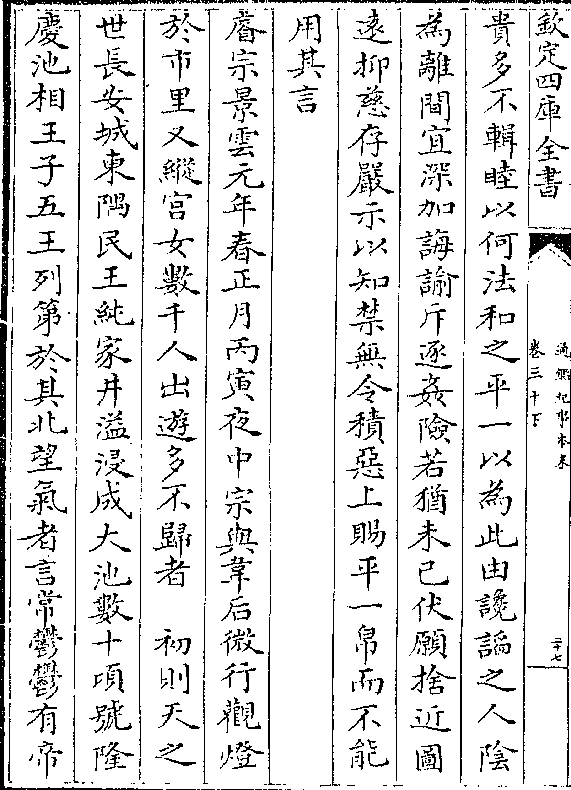 欽定四庫全書
通鑑紀事本末
卷三十下
二十七
貴多不輯睦以何法和之平一以為此由讒謟之人陰
為離間宜深加誨諭斥逐姦險若猶未已伏願捨近圖
遠抑慈存嚴示以知禁無令積惡上賜平一帛而不能
用其言
睿宗景雲元年春正月丙寅夜中宗與韋后微行觀燈
於市里又縱宮女數千人出遊多不歸者　初則天之
世長安城東隅民王純家井溢浸成大池數十頃號隆
慶池相王子五王列第於其北望氣者言常鬱鬱有帝